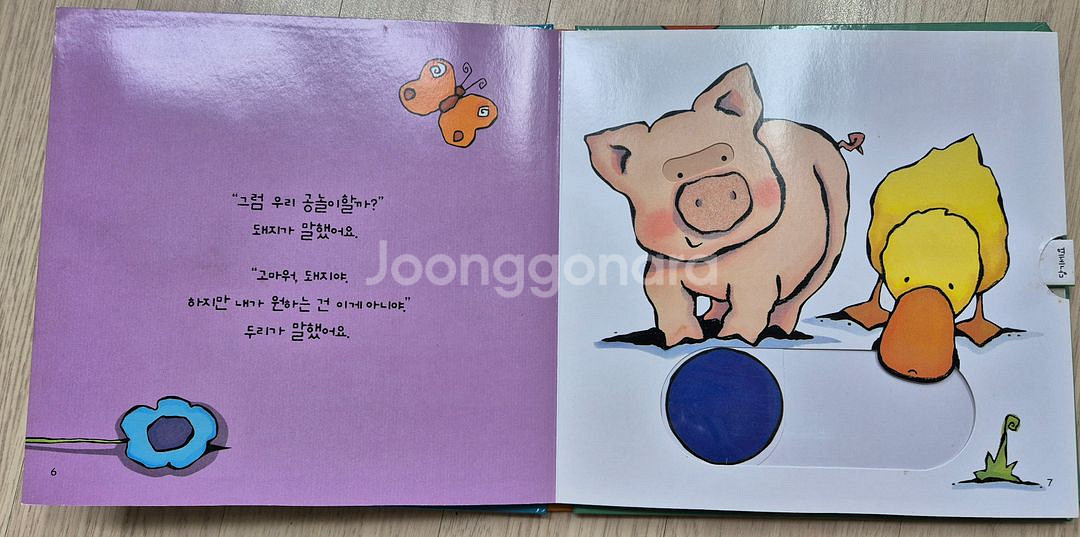 "그럼 우리 공놀이할까?"
돼지가 말했어요.
"고마워, 돼지야.
하지만 내가 원하는 건 이게 아니야."
두리가 말했어요.
Joonggonara
6
7